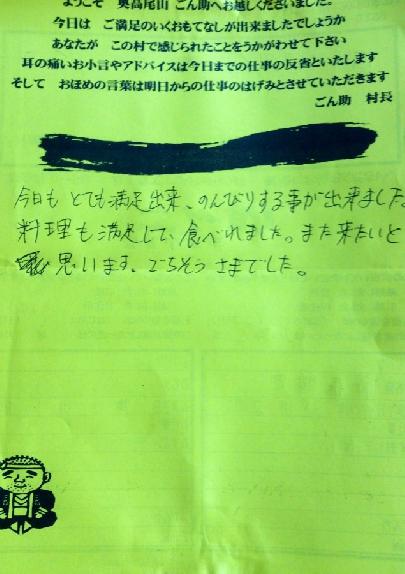 ようこそ　奥高尾山　ごん助へお越しくださいました。
今日は　ご満足のいくおもてなしが出来ましたでしょうか
あなたが　この村で感じられたことをうかがわせて下さい
耳の痛いお小言やアドバイスは今日までの仕事の反省といたします
そして　おほめの言葉は明日からの仕事のはげみとさせていただきます
ごん助　村長
今日も とても満足出来、のんびりする事が出来ました。
料理も満足して、食べれました。また来たいと
思います、ごちそうさまでした。